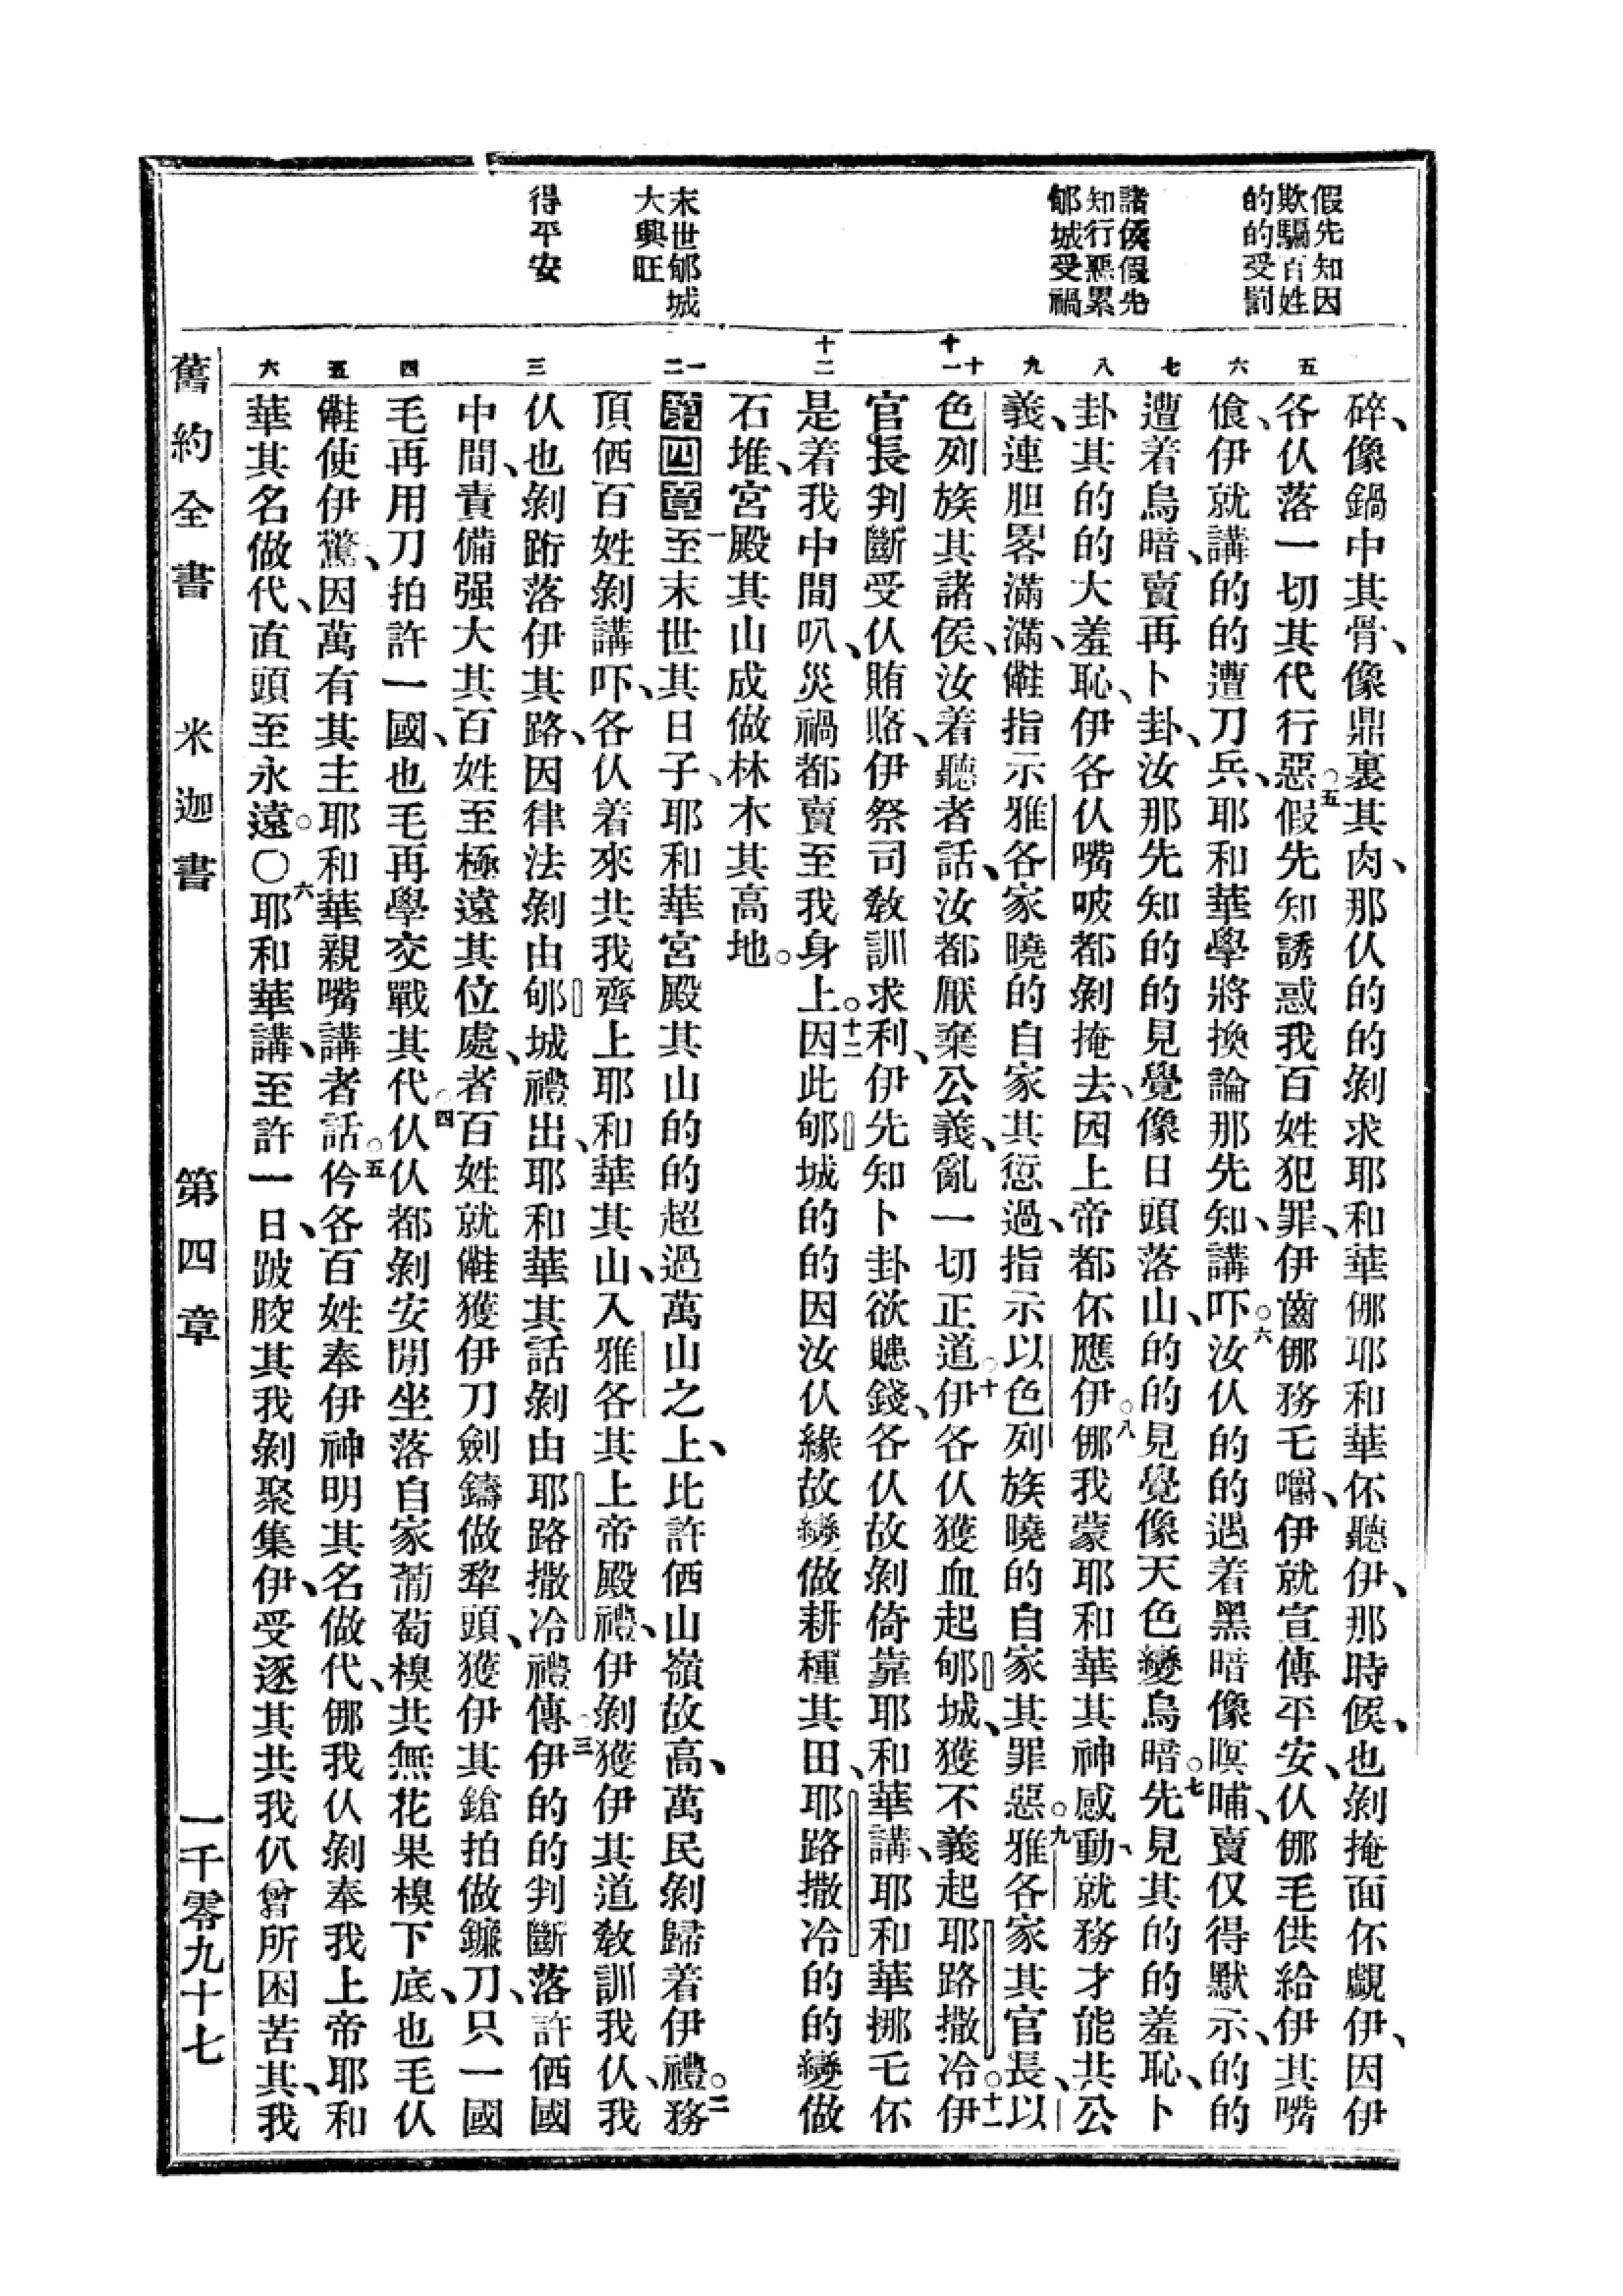 假先知因
欺騙百姓
的的受罰
諸侯假先
知行惡累
郇城受禍
末世郇城
大興旺
得平安
五
六
七
八
九
十
十一
十二
一
二
三
四
五
六
碎、像鍋中其骨、像鼎裏其肉、那仈的的剝求耶和華𠉞耶和華伓聽伊、那時候、也剝掩面伓覷伊、因伊
各仈落一切其代行惡○五假先知誘惑我百姓犯罪、伊齒𠉞務乇嚼、伊就宣傳平安、仈𠉞毛供給伊其嘴
飡、伊就講的的遭刀兵、耶和華學將換論那先知、講○六吓汝仈的的遇着黑暗像暝晡、賣仅得默示、的的
遭着烏暗、賣再卜卦、汝那先知的的見覺像日頭落山、的的見覺像天色變烏暗○七先見其的的羞恥、卜
卦其的的大羞恥、伊各仈嘴㕰都剝掩去、因上帝都伓應伊○八𠉞我蒙耶和華其神感動、就務才能共公
義、連胆畧滿滿、𡅏指示雅各家曉的自家其愆過、指示以色列族曉的自家其罪惡○九雅各家其官長、以
色列族其諸侯、汝着聽者話、汝都厭棄公義、亂一切正道○十伊各仈獲血起郇城、獲不義起耶路撒冷○十一伊
官長判斷受仈賄賂、伊祭司教訓求利、伊先知卜卦欲賺錢、各仈故剝倚靠耶和華講、耶和華挪乇伓
是着我中間叭、災禍都賣至我身上○十二因此郇城的的因汝仈緣故變做耕種其田、耶路撒冷的的變做
石堆、宮殿其山成做林木其高地。
第四章一至末世其日子、耶和華宮殿其山的的超過萬山之上、比許𠆧山嶺故高、萬民剝歸着伊禮○二務
頂𠆧百姓剝講吓、各仈着來共我齊上耶和華其山、入雅各其上帝殿禮、伊剝獲伊其道教訓我仈、我
仈也剝跱落伊其路、因律法剝由郇城禮出、耶和華其話剝由耶路撒冷禮傳○三伊的的判斷落許𠆧國
中間、責備强大其百姓至極遠其位處、者百姓就𡅏獲伊刀劍鑄做犂頭、獲伊其鎗拍做鐮刀、只一國
毛再用刀拍許一國、也毛再學交戰其代○四仈仈都剝安閒坐落自家葡萄模共無花果模下底、也毛仈
𡅏使伊驚、因萬有其主耶和華親嘴講者話○五仱各百姓奉伊神明其名做代、𠉞我仈剝奉我上帝耶和
華其名做代、直頭至永遠○○六耶和華講、至許一日、跛骹其我剝聚集伊、受逐其共我仈曾所困苦其、我
舊約全書 米迦書 第四章 一千零九十七